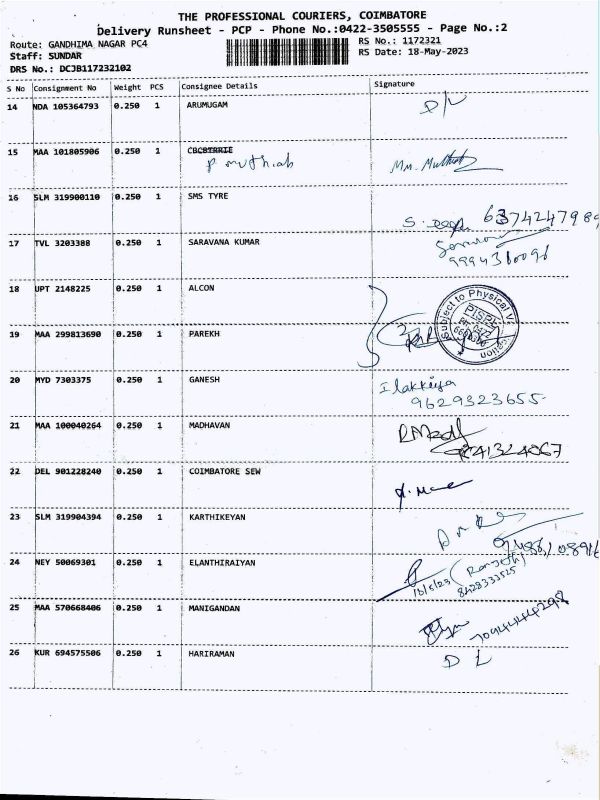 THE PROFESSIONAL COURIERS, COIMBATORE
Delivery Runsheet - PCP - Phone No.:0422-3505555 - Page No.:2
Route: GANDHIMA NAGAR PC4
RS No.: 1172321
Staff: SUNDAR
RS Date: 18-May-2023
DRS No.: DCJB117232102
S No Consignment No Weight PCS Consignee Details Signature
14 NDA 105364793 0.250 1 ARUMUGAM D/L
15 MAA 101805906 0.250 1 CBCBTRRIE
P. muthiah
16 SLM 319900110 0.250 1 SMS TYRE
6374247989
17 TVL 3203388 0.250 1 SARAVANA KUMAR
9994360096
18 UPT 2148225 0.250 1 ALCON
Subject to Physical
19 MAA 299813690 0.250 1 PAREKH
20 MYD 7303375 0.250 1 GANESH Ilakkiya
9629323655
21 MAA 100040264 0.250 1 MADHAVAN
22 DEL 901228240 0.250 1 COIMBATORE SEW
23 SLM 319904394 0.250 1 KARTHIKEYAN
24 NEY 50069301 0.250 1 ELANTHIRAIYAN (Ranjeth)
8428333525
25 MAA 570668406 0.250 1 MANIGANDAN
7094444298
26 KUR 694575506 0.250 1 HARIRAMAN D L